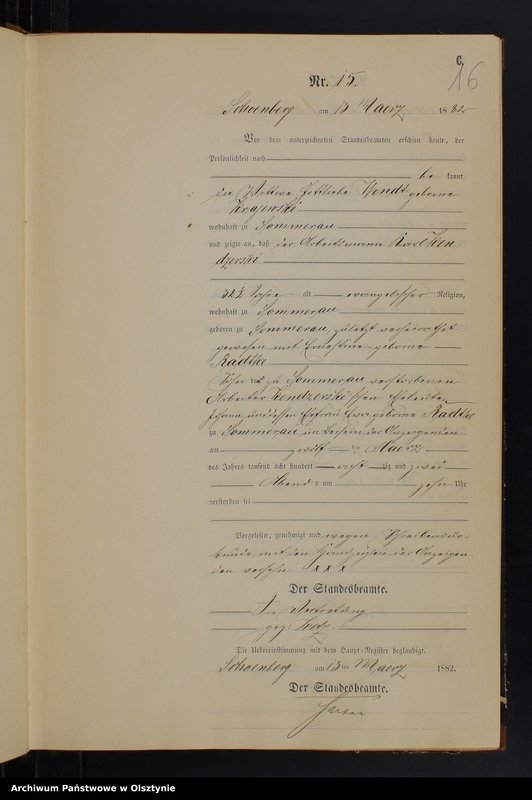 C.
16
Nr. 15.
Schoenberg am 13 Maerz 1882
Vor dem unterzeichneten Standesbeamten erschien heute, der
Persönlichkeit nach
be kannt,
die Wittwe Gottliebe Wendt geborne
Krajewski
wohnhaft zu Sommerau
und zeigte an, daß der Arbeitsmann Karl Ken
dzerski
Jahre alt evangelischer Religion,
wohnhaft zu Sommerau
geboren zu Sommerau, zuletzt verheirathet
gewesen mit Ernestine geborne
Radtke
Sohn zu Sommerau verstorbenen
Arbeiter Kendzerski'schen Eheleute,
Johann und dessen Ehefrau Eva geborne Radtke
zu Sommerau im Beisein der Anzeigenden
am zwölf ten Maerz
des Jahres tausend acht hundert acht zig und zwei
Abends um zehn Uhr
verstorben sei
Vorgelesen, genehmigt und wegen Schreibensun-
kunde mit den Handzeichen der Anzeigen
den versehn x x x
Der Standesbeamte.
In Vertretung
gez:
Die Uebereinstimmung mit dem Haupt-Register beglaubigt.
Schoenberg am 13 ten Maerz 1882.
Der Standesbeamte.
Archiwum Państwowe w Olsztynie